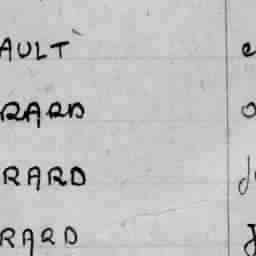 AULT e
RARD o
RARD
RARD